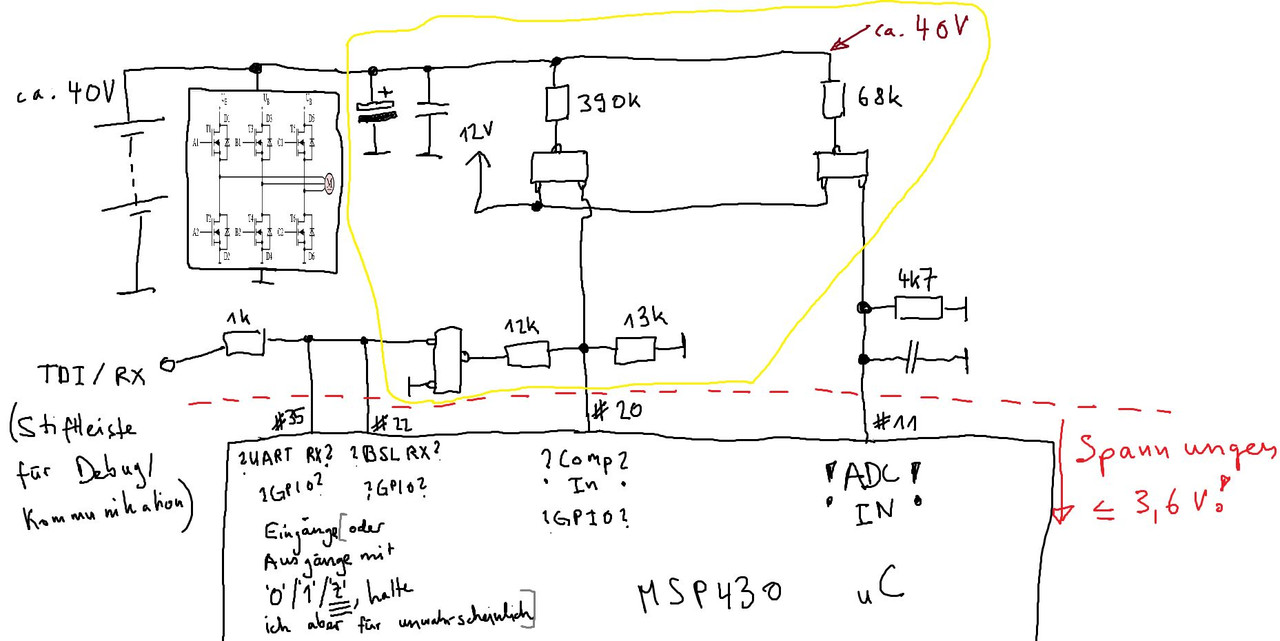 ca. 40V
ca. 40V
390k
68k
12V
A1
B1
C1
A2
B2
C2
D1
D3
D5
D2
D4
D6
M
4k7
1k
12k
13k
TDI/RX
(Stiftleiste
für Debug/
Kommunikation)
#35
#22
#20
#11
Spannungen
≤ 3,6V!
?UART RX?
?BSL RX?
?Comp?
In
!ADC!
IN
?GPIO?
?GPIO?
?GPIO?
Eingänge [oder
Ausgänge mit
'0'/'1'/'Z', halte
ich aber für unwahrscheinlich]
MSP430 uC